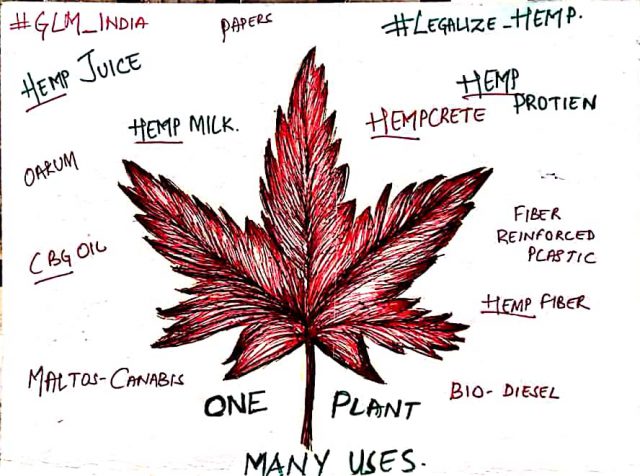 #GLM_INDIA
PAPERS
#LEGALIZE_HEMP.
HEMP JUICE
HEMP
PROTIEN
HEMP MILK.
HEMPCRETE
OARUM
FIBER
REINFORCED
PLASTIC
CBG OIL
HEMP FIBER
MALTOS-CANABIS
BIO-DIESEL
ONE PLANT
MANY USES.